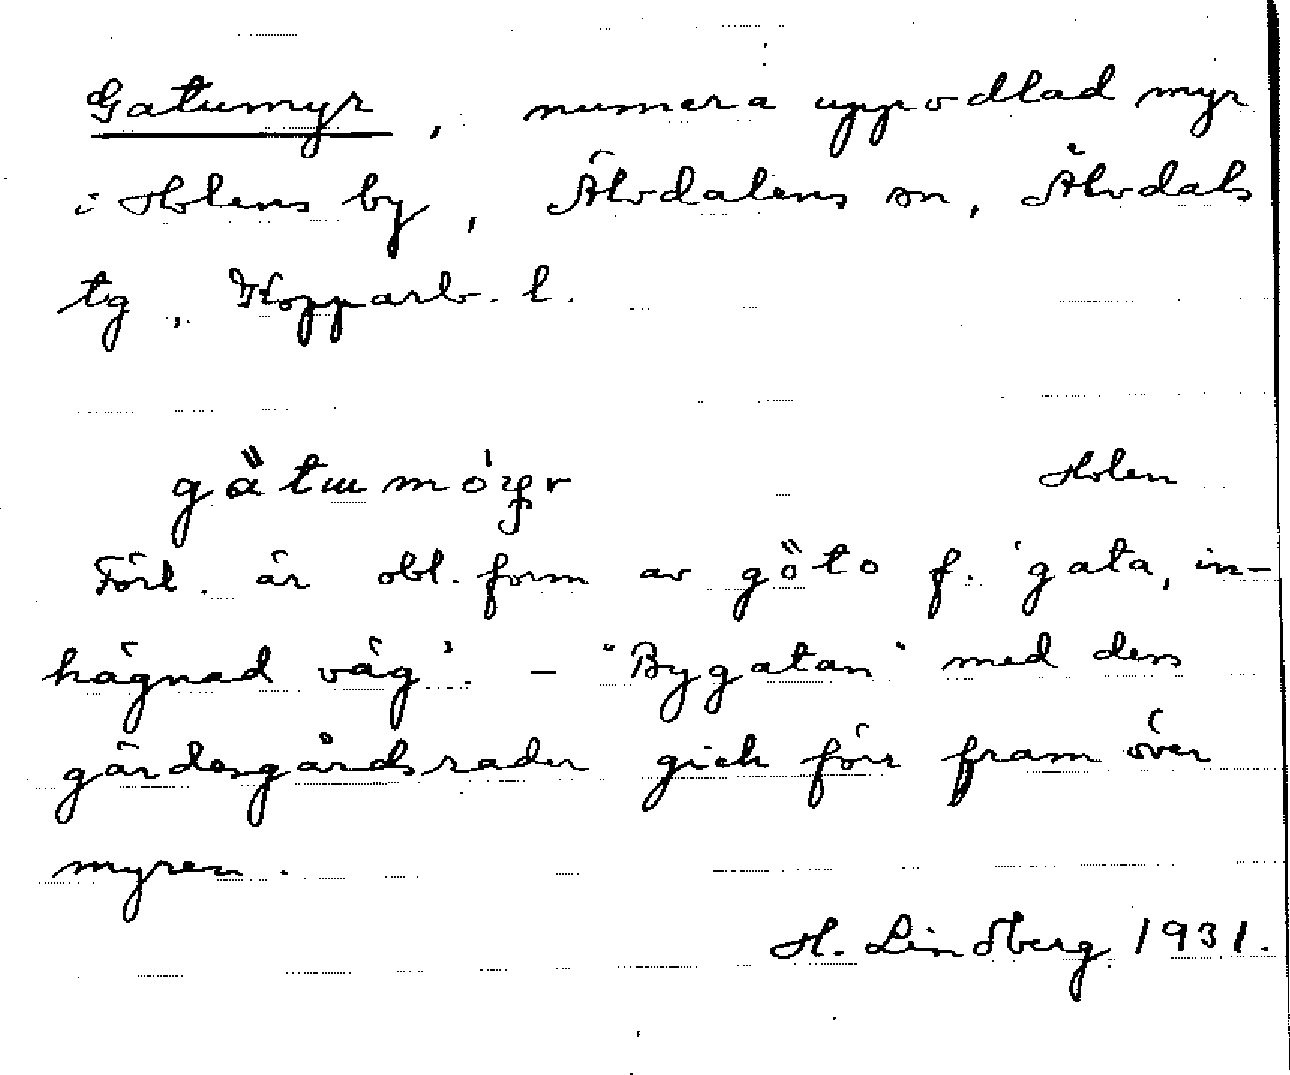 Gatumyr, numera uppodlad myr
i Holens by, Älvdalens sn, Älvdals
tg, Kopparb. l.
Holen
Förl. är obl. form av gö̀to f. 'gata, in-
hägnad väg'. – "Bygatan" med dess
gärdesgårdsrader gick förr fram över
myren.
H. Lindberg 1931.